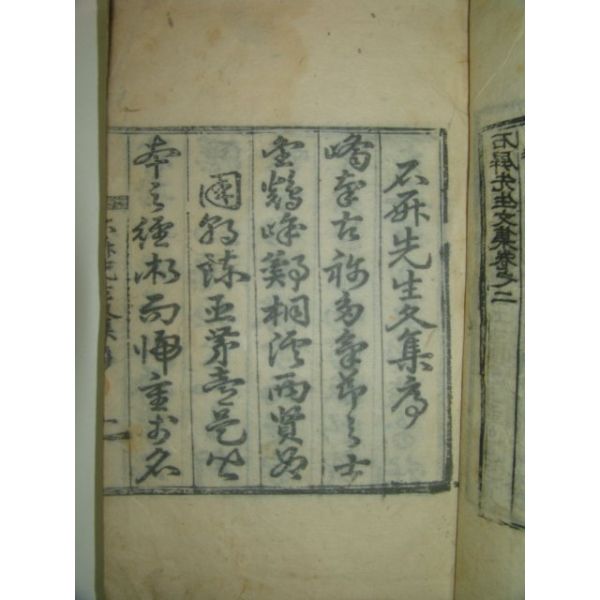 石屛先生文集卷之二
石屛先生文集序
嶠南古称多氣節之士
金鶴峰鄭桐溪兩賢
國朝 是
本之經術而歸重於名
石屛先生文集序 一